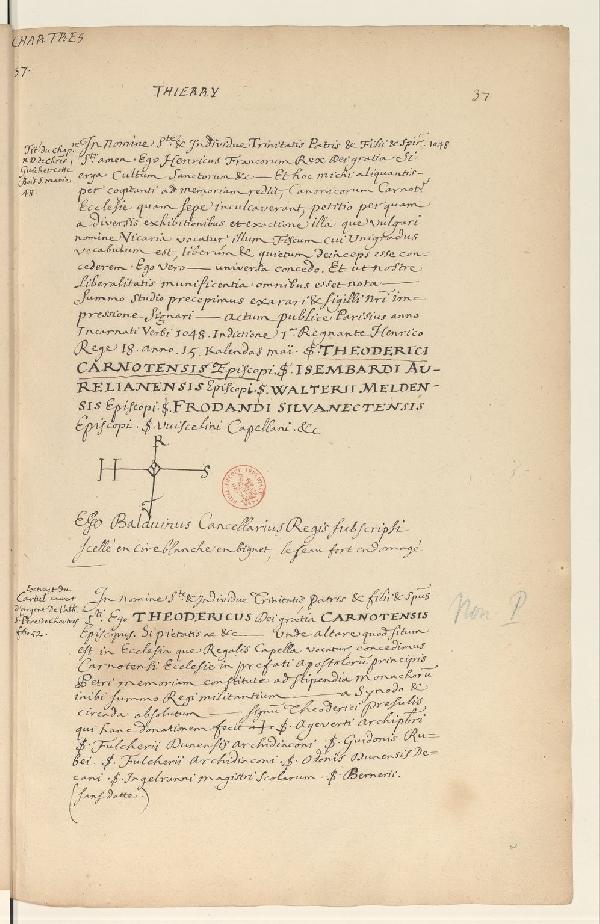 CHARTRES
37.
THIERRY
37
Tit. du chap.
48.
In nomine Ste & Individue Trinitatis Patris & Filii & Spir. 1048
Sti amen. Ego Henricus Francorum Rex Dei gratia Si
erga Cultum Sanctorum &c — Et hoc michi aliquantis-
per cogitanti ad memoriam rediit, Canonicorum Carnoti
Ecclesie quam sepe inculcaverant, petitio per quam
a diversis exhibitionibus et exactione illa que vulgari
nomine Vicaria vocatur illum Fiscum cui Unigradus
vocabulum est, liberum & quietum deinceps esse con-
cederem. Ego vero — universa concedo. Et ut nostre
liberalitatis munificentia omnibus esset nota —
Summo studio precepimus exarari & sigilli nri im-
pressione Signari — actum publice Parisius anno
Incarnati Verbi 1048. Indictione 1a Regnante Henrico
Rege 18. anno. 15. Kalendas maii. S. THEODERICI
CARNOTENSIS Episcopi. S. ISEMBARDI AU-
RELIANENSIS Episcopi. S. WALTERII MELDEN-
SIS Episcopi. S. FRODANDI SILVANECTENSIS
Episcopi. S. Vuiscelini Capellani. &c
R
H S
Ego Balduinus Cancellarius Regis subscripsi
scellé en cire blanche en bignet, le seau fort endomagé.
Extrait du
d'argent de l'abb.
In nomine Ste & Individue Trinitatis patris & filii & spus
Sti Ego THEODERICUS Dei gratia CARNOTENSIS
Episcopus. di pietatis ne &c — Unde altare quod situm
est in Ecclesia que Regalis Capella vocatur concedimus
Carnotensi Ecclesie in prefati Apostolorū principis
Petri memoriam constitute ad stipendia monachorū
inibi summo Regi militantium — a Synodo &
circada absolutum — signū Theoderici presulis
qui hanc donationem fecit +. S. Ageverti Archipbri
S. Fulcherii Dunensis Archidiaconi. S. Guidonis Ru-
bei. S. Fulcherii Archidiaconi. S. Odonis Dunensis De-
cani. S. Ingelranni magistri scolarum. S. Bernerii.
(sans datte.)
Non P